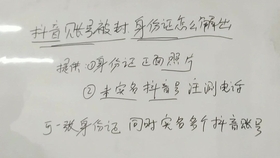 抖音账号被封 身份证怎么解出
提供 ①身份证 正面照片
② 未实名抖音号 注册电话
可一张身份证 同时实名多个抖音账号